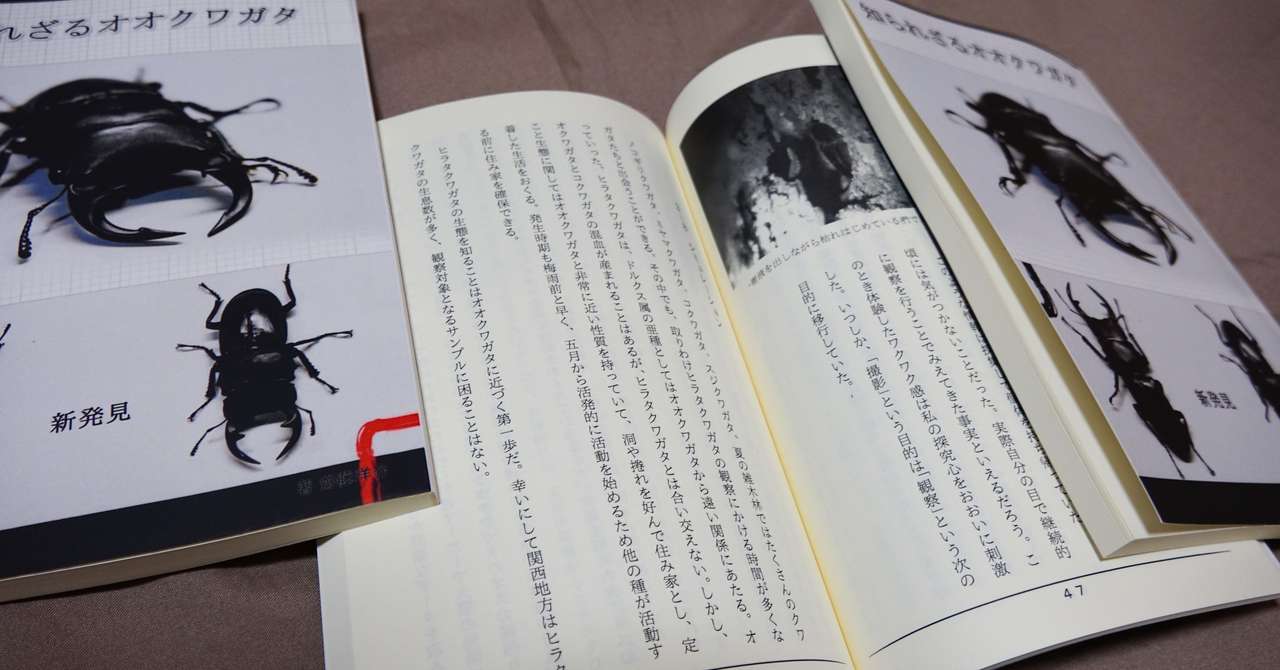 れざるオオクワガタ
新発見
知られざるオオクワガタ
新発見
樹液を出しながら枯れはじめている
頃には気がつかないことだった。実際自分の目で継続的
に観察を行うことでみえてきた事実といえるだろう。こ
のとき体験したワクワク感は私の探究心をおおいに刺激
した。いつしか、「撮影」という目的は「観察」という次の
目的に移行していた。
47
ノコギリクワガタ、ミヤマクワガタ、コクワガタ、スジクワガタ。夏の雑木林ではたくさんのクワ
ガタたちと出会うことができる。その中でも、取りわけヒラタクワガタの観察にかける時間が多くな
っていった。ヒラタクワガタは、ドルクス属の亜種としてはオオクワガタから遠い関係にあたる。オ
オクワガタとコクワガタの混血が産まれることはあるが、ヒラタクワガタとは合い交えない。しかし、
こと生態に関してはオオクワガタと非常に近い性質を持っていて、洞や捲れを好んで住み家とし、定
着した生活をおくる。発生時期も梅雨前と早く、五月から活発的に活動を始めるため他の種が活動す
る前に住み家を確保できる。
ヒラタクワガタの生態を知ることはオオクワガタに近づく第一歩だ。幸いにして関西地方はヒラタ
クワガタの生息数が多く、観察対象となるサンプルに困ることはない。